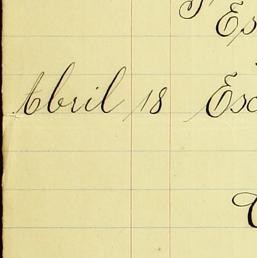 Es
Abril 18 Esc